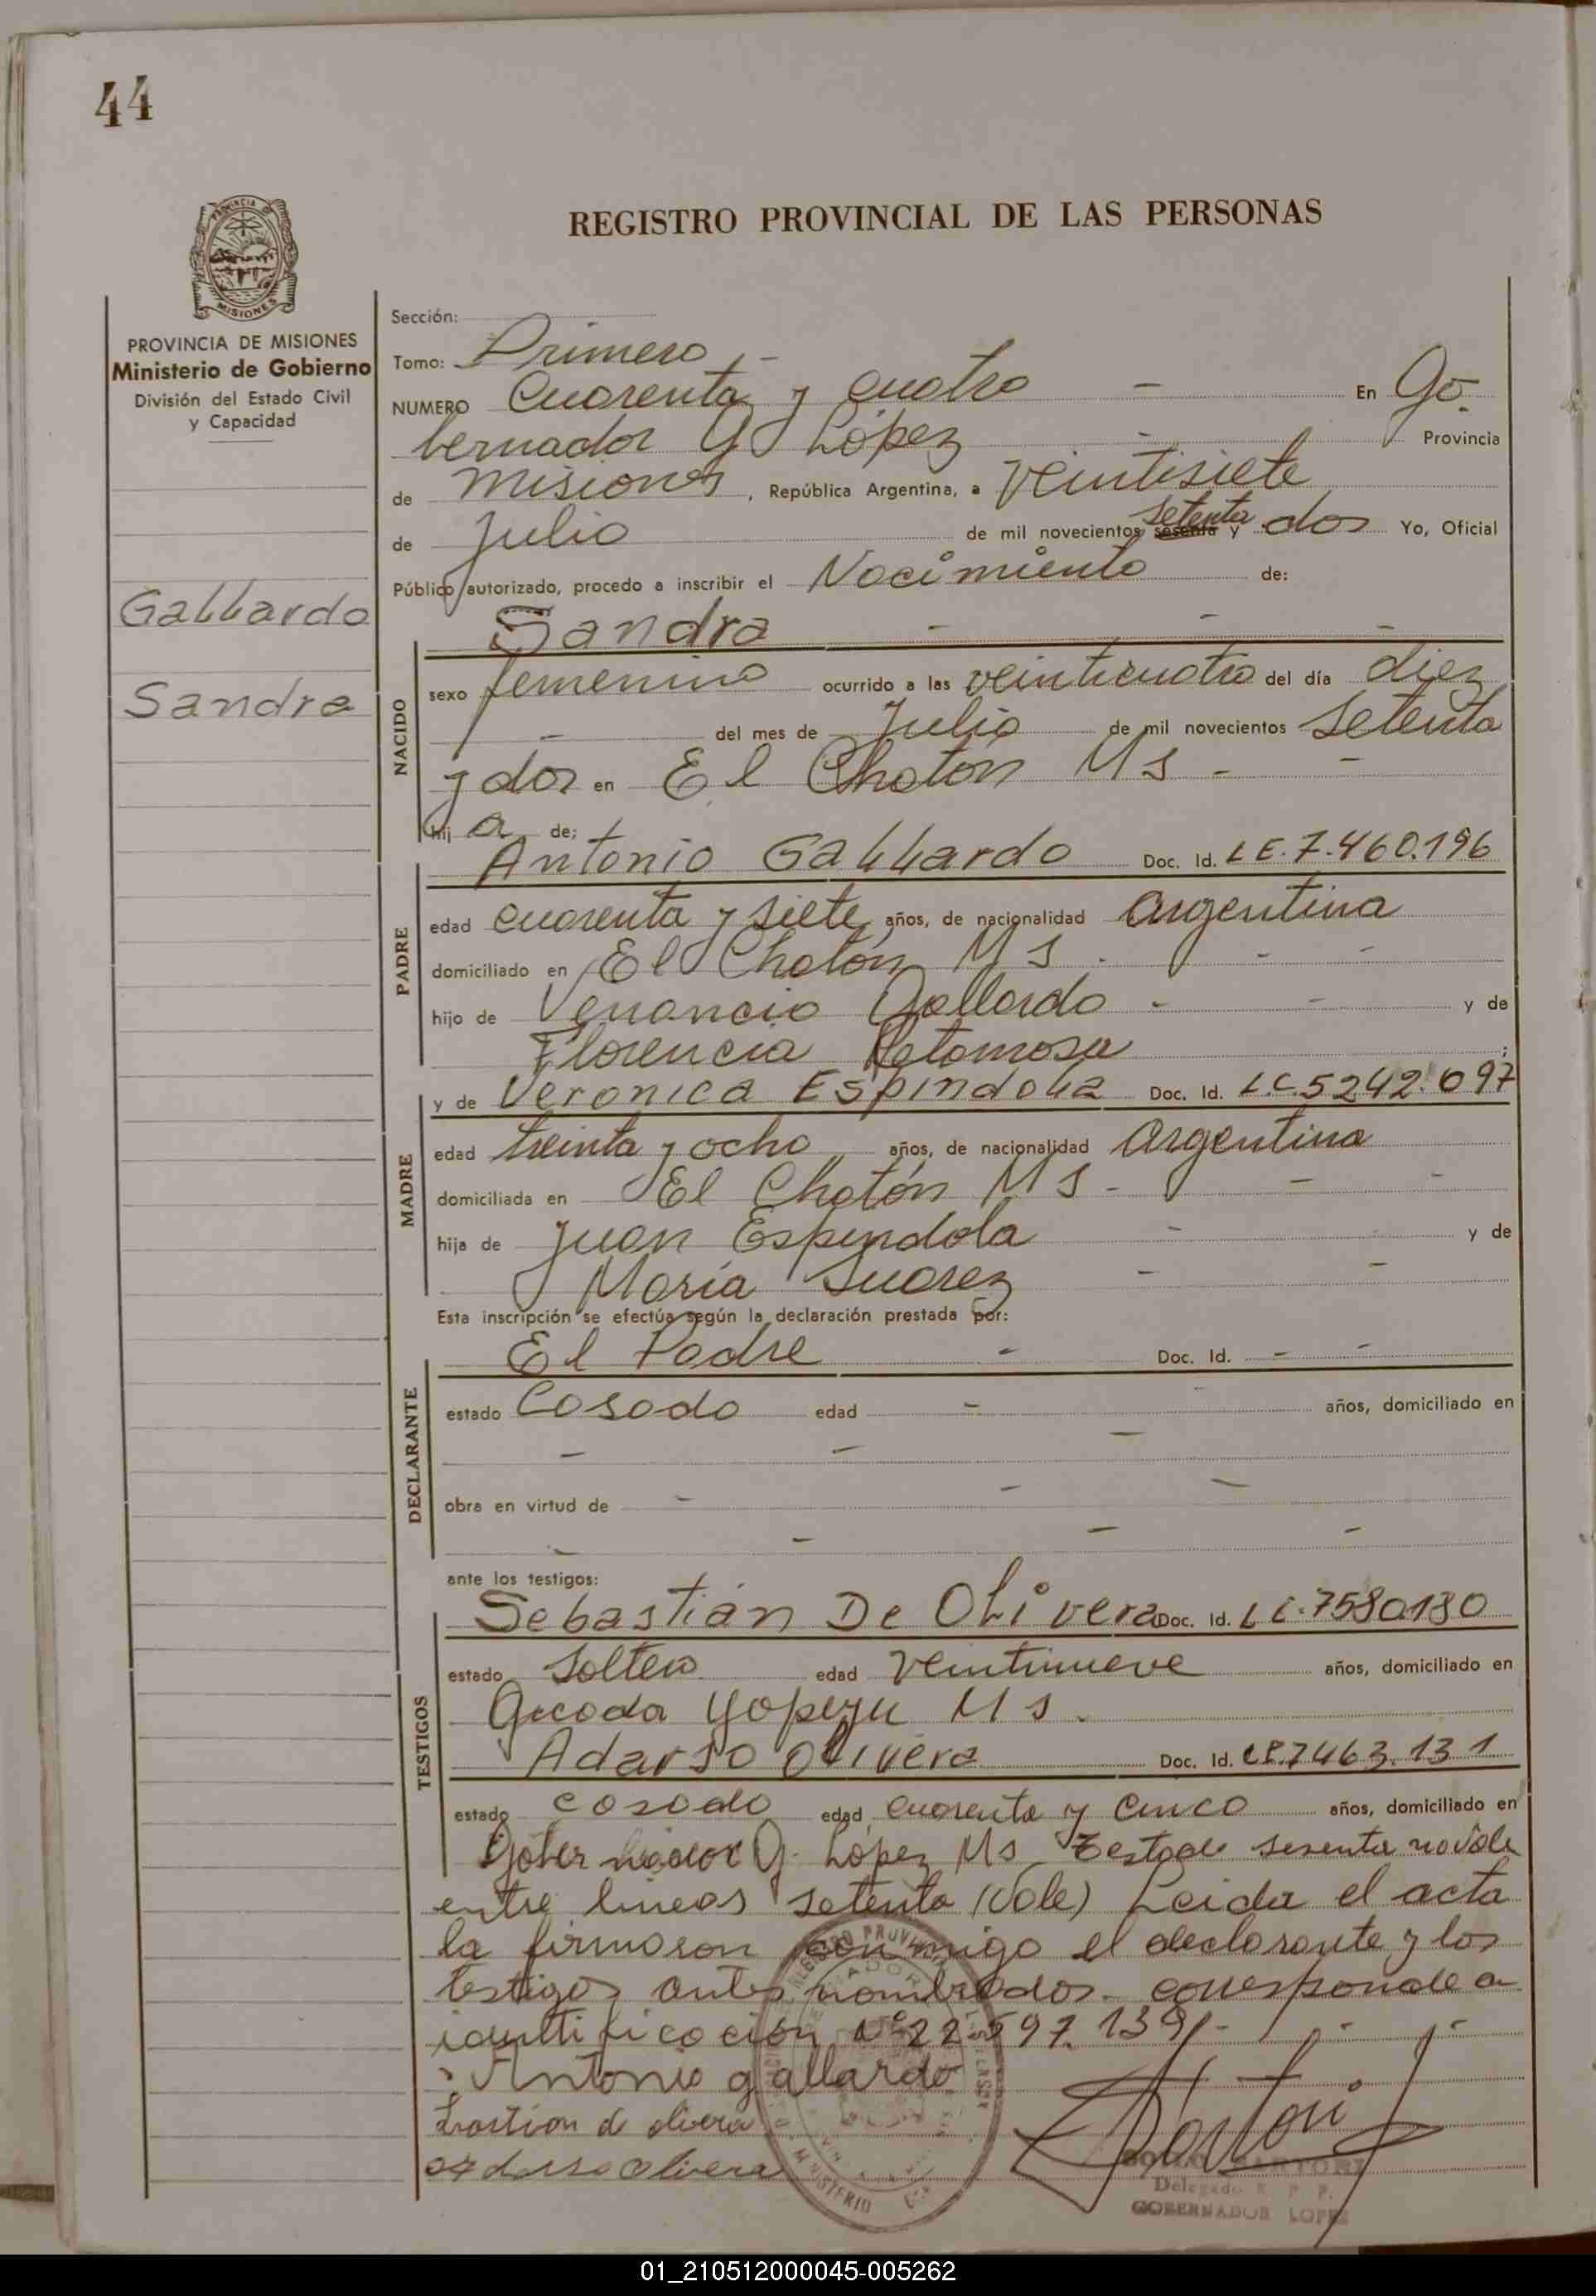 44
PROVINCIA DE
MISIONES
PROVINCIA DE MISIONES
Ministerio de Gobierno
División del Estado Civil
y Capacidad
Gallardo
Sandra
REGISTRO PROVINCIAL DE LAS PERSONAS
Sección:
Tomo: Primero -
NUMERO Cuarenta y cuatro - En Go
bernador G López - Provincia
de Misiones, República Argentina, a Veintisiete
de Julio de mil novecientos sesenta setenta y dos Yo, Oficial
Público autorizado, procedo a inscribir el Nacimiento de:
Sandra - - -
NACIDO
sexo femenino ocurrido a las veinticuatro del día diez
- del mes de Julio de mil novecientos Setenta
y dos en El Chatón Ms - -
hij a de;
Antonio Gallardo Doc. Id. LE.7.460.196
PADRE
edad cuarenta y siete años, de nacionalidad argentina
domiciliado en El Chatón Ms. - -
hijo de Venancio Gallardo - - y de
Florencia Retamosa ;
y de Veronica Espindola Doc. Id. L.C.5242.097
MADRE
edad treinta y ocho años, de nacionalidad argentina
domiciliada en El Chatón Ms - - -
hija de Juan Espindola - y de
María Suarez - -
Esta inscripción se efectúa según la declaración prestada por:
El Padre - Doc. Id. - -
DECLARANTE
estado Casado edad - años, domiciliado en
- - -
obra en virtud de - - -
- - - -
ante los testigos:
Sebastián De Olivera Doc. Id. 7580180
TESTIGOS
estado soltero edad veintinueve años, domiciliado en
Yapeyu Ms.
Adarso Olivera Doc. Id. 7463.131
estado casado edad cuarenta y cinco años, domiciliado en
Gobernador G. López Ms Testado sesenta no vale
entre lineas setenta (vale) Leida el acta
la firmaron conmigo el declarante y los
testigos antes nombrados. corresponde a
identificación Nº 22597.139/-
Antonio gallardo
de olivera
adarso olivera
Sartori
SARTORI
Delegado R. P. P.
GOBERNADOR LOPEZ
MINISTERIO
01_210512000045-005262